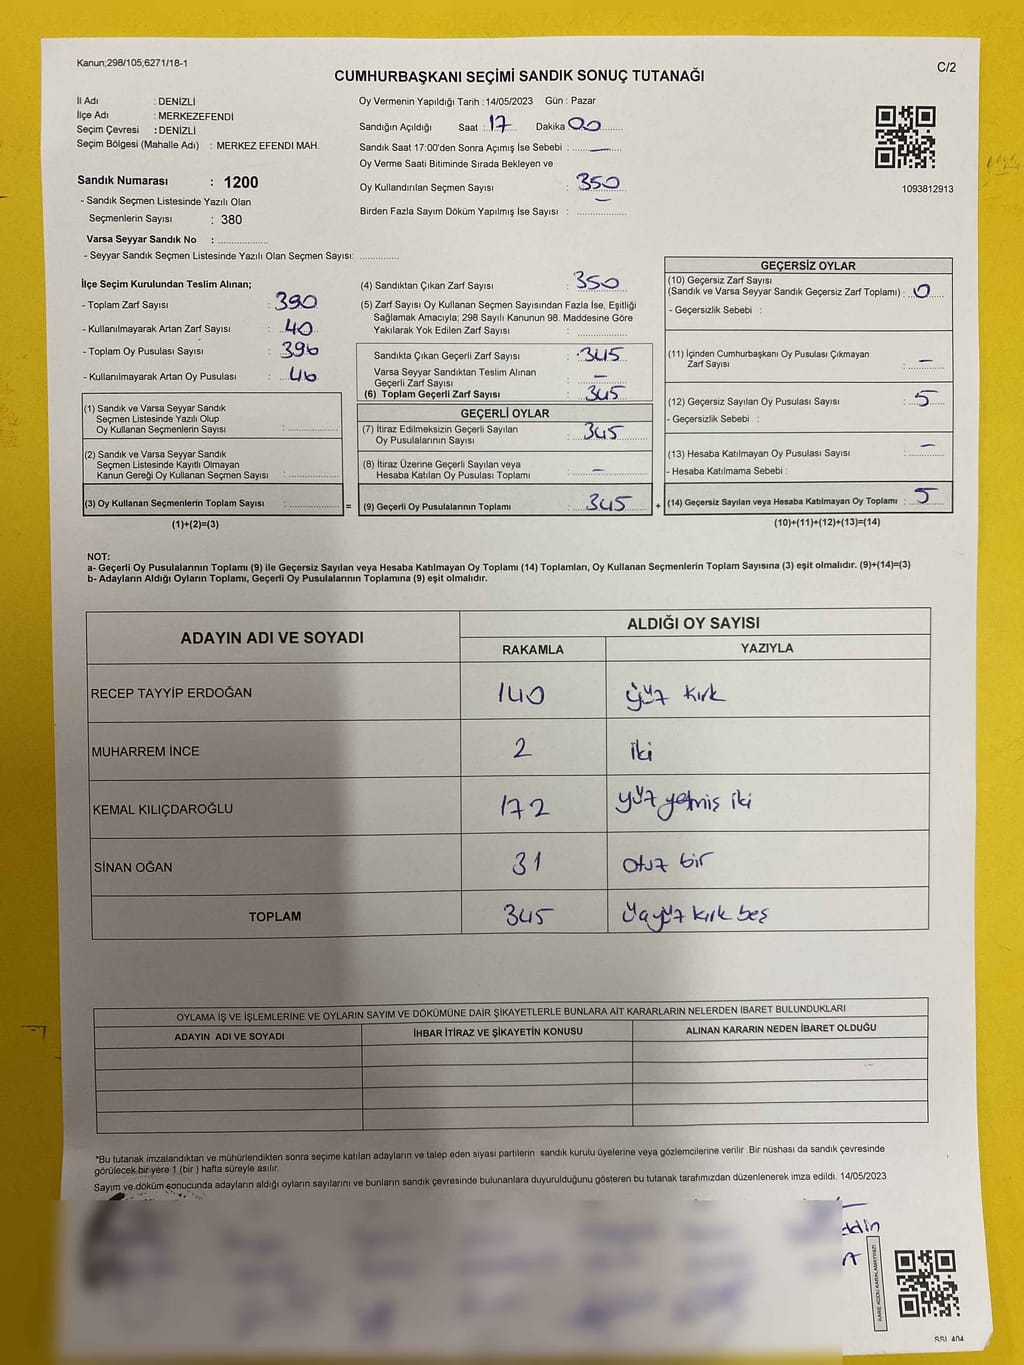 Kanun;298/105;6271/18-1
C/2
CUMHURBAŞKANI SEÇİMİ SANDIK SONUÇ TUTANAĞI
İl Adı : DENİZLİ
İlçe Adı : MERKEZEFENDİ
Seçim Çevresi : DENİZLİ
Seçim Bölgesi (Mahalle Adı) : MERKEZ EFENDİ MAH.
Sandık Numarası : 1200
- Sandık Seçmen Listesinde Yazılı Olan
Seçmenlerin Sayısı : 380
Varsa Seyyar Sandık No : ..................
- Seyyar Sandık Seçmen Listesinde Yazılı Olan Seçmen Sayısı: ............
Oy Vermenin Yapıldığı Tarih : 14/05/2023 Gün : Pazar
Sandığın Açıldığı Saat : 17 Dakika 00
Sandık Saat 17:00'den Sonra Açımış İse Sebebi : —
Oy Verme Saati Bitiminde Sırada Bekleyen ve
Oy Kullandırılan Seçmen Sayısı : 350
Birden Fazla Sayım Döküm Yapılmış İse Sayısı : —
1093812913
İlçe Seçim Kurulundan Teslim Alınan;
- Toplam Zarf Sayısı : 390
- Kullanılmayarak Artan Zarf Sayısı : 40
- Toplam Oy Pusulası Sayısı : 396
- Kullanılmayarak Artan Oy Pusulası : 46
(1) Sandık ve Varsa Seyyar Sandık
Seçmen Listesinde Yazılı Olup
Oy Kullanan Seçmenlerin Sayısı : ............
(2) Sandık ve Varsa Seyyar Sandık
Seçmen Listesinde Kayıtlı Olmayan
Kanun Gereği Oy Kullanan Seçmen Sayısı : ............
(3) Oy Kullanan Seçmenlerin Toplam Sayısı : ............ =
(1)+(2)=(3)
(4) Sandıktan Çıkan Zarf Sayısı : 350
(5) Zarf Sayısı Oy Kullanan Seçmen Sayısından Fazla İse, Eşitliği
Sağlamak Amacıyla; 298 Sayılı Kanunun 98. Maddesine Göre
Yakılarak Yok Edilen Zarf Sayısı : ............
Sandıkta Çıkan Geçerli Zarf Sayısı : 345
Varsa Seyyar Sandıktan Teslim Alınan
Geçerli Zarf Sayısı : —
(6) Toplam Geçerli Zarf Sayısı : 345
GEÇERLİ OYLAR
(7) İtiraz Edilmeksizin Geçerli Sayılan
Oy Pusulalarının Sayısı : 345
(8) İtiraz Üzerine Geçerli Sayılan veya
Hesaba Katılan Oy Pusulası Toplamı : —
(9) Geçerli Oy Pusulalarının Toplamı : 345 +
GEÇERSİZ OYLAR
(10) Geçersiz Zarf Sayısı
(Sandık ve Varsa Seyyar Sandık Geçersiz Zarf Toplamı) : 0
- Geçersizlik Sebebi :
(11) İçinden Cumhurbaşkanı Oy Pusulası Çıkmayan
Zarf Sayısı : —
(12) Geçersiz Sayılan Oy Pusulası Sayısı : 5
- Geçersizlik Sebebi :
(13) Hesaba Katılmayan Oy Pusulası Sayısı : —
- Hesaba Katılmama Sebebi :
(14) Geçersiz Sayılan veya Hesaba Katılmayan Oy Toplamı : 5
(10)+(11)+(12)+(13)=(14)
NOT:
a- Geçerli Oy Pusulalarının Toplamı (9) ile Geçersiz Sayılan veya Hesaba Katılmayan Oy Toplamı (14) Toplamları, Oy Kullanan Seçmenlerin Toplam Sayısına (3) eşit olmalıdır. (9)+(14)=(3)
b- Adayların Aldığı Oyların Toplamı, Geçerli Oy Pusulalarının Toplamına (9) eşit olmalıdır.
ADAYIN ADI VE SOYADI ALDIĞI OY SAYISI
RAKAMLA YAZIYLA
RECEP TAYYİP ERDOĞAN 140 yüz kırk
MUHARREM İNCE 2 iki
KEMAL KILIÇDAROĞLU 172 yüz yetmiş iki
SİNAN OĞAN 31 otuz bir
TOPLAM 345 üçyüz kırk beş
OYLAMA İŞ VE İŞLEMLERİNE VE OYLARIN SAYIM VE DÖKÜMÜNE DAİR ŞİKAYETLERLE BUNLARA AİT KARARLARIN NELERDEN İBARET BULUNDUKLARI
ADAYIN ADI VE SOYADI İHBAR İTİRAZ VE ŞİKAYETİN KONUSU ALINAN KARARIN NEDEN İBARET OLDUĞU
*Bu tutanak imzalandıktan ve mühürlendikten sonra seçime katılan adayların ve talep eden siyasi partilerin sandık kurulu üyelerine veya gözlemcilerine verilir .Bir nüshası da sandık çevresinde
görülecek bir yere 1 (bir ) hafta süreyle asılır.
Sayım ve döküm sonucunda adayların aldığı oyların sayılarını ve bunların sandık çevresinde bulunanlara duyurulduğunu gösteren bu tutanak tarafımızdan düzenlenerek imza edildi. 14/05/2023
ddin
KARE KODU KARALAMAYINIZ!